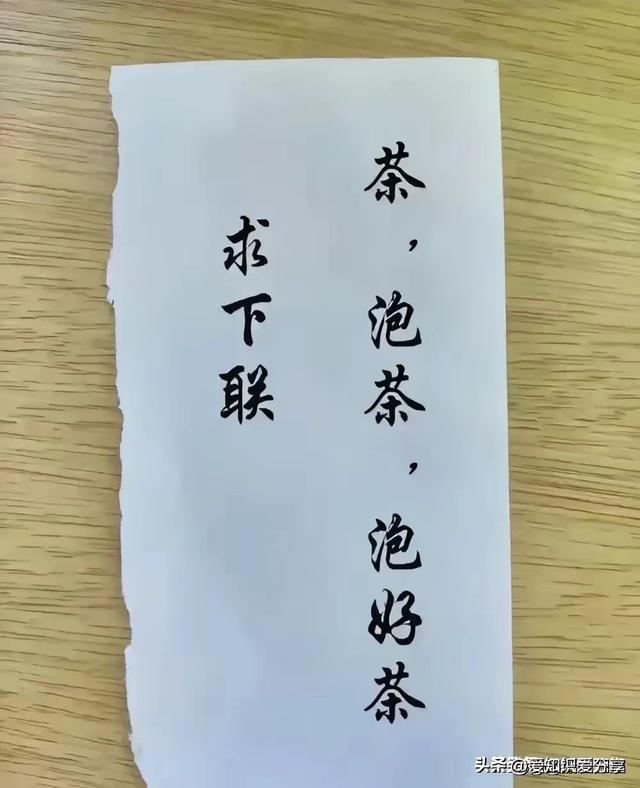 茶，泡茶，泡好茶
求下联
头条@爱知识爱分享